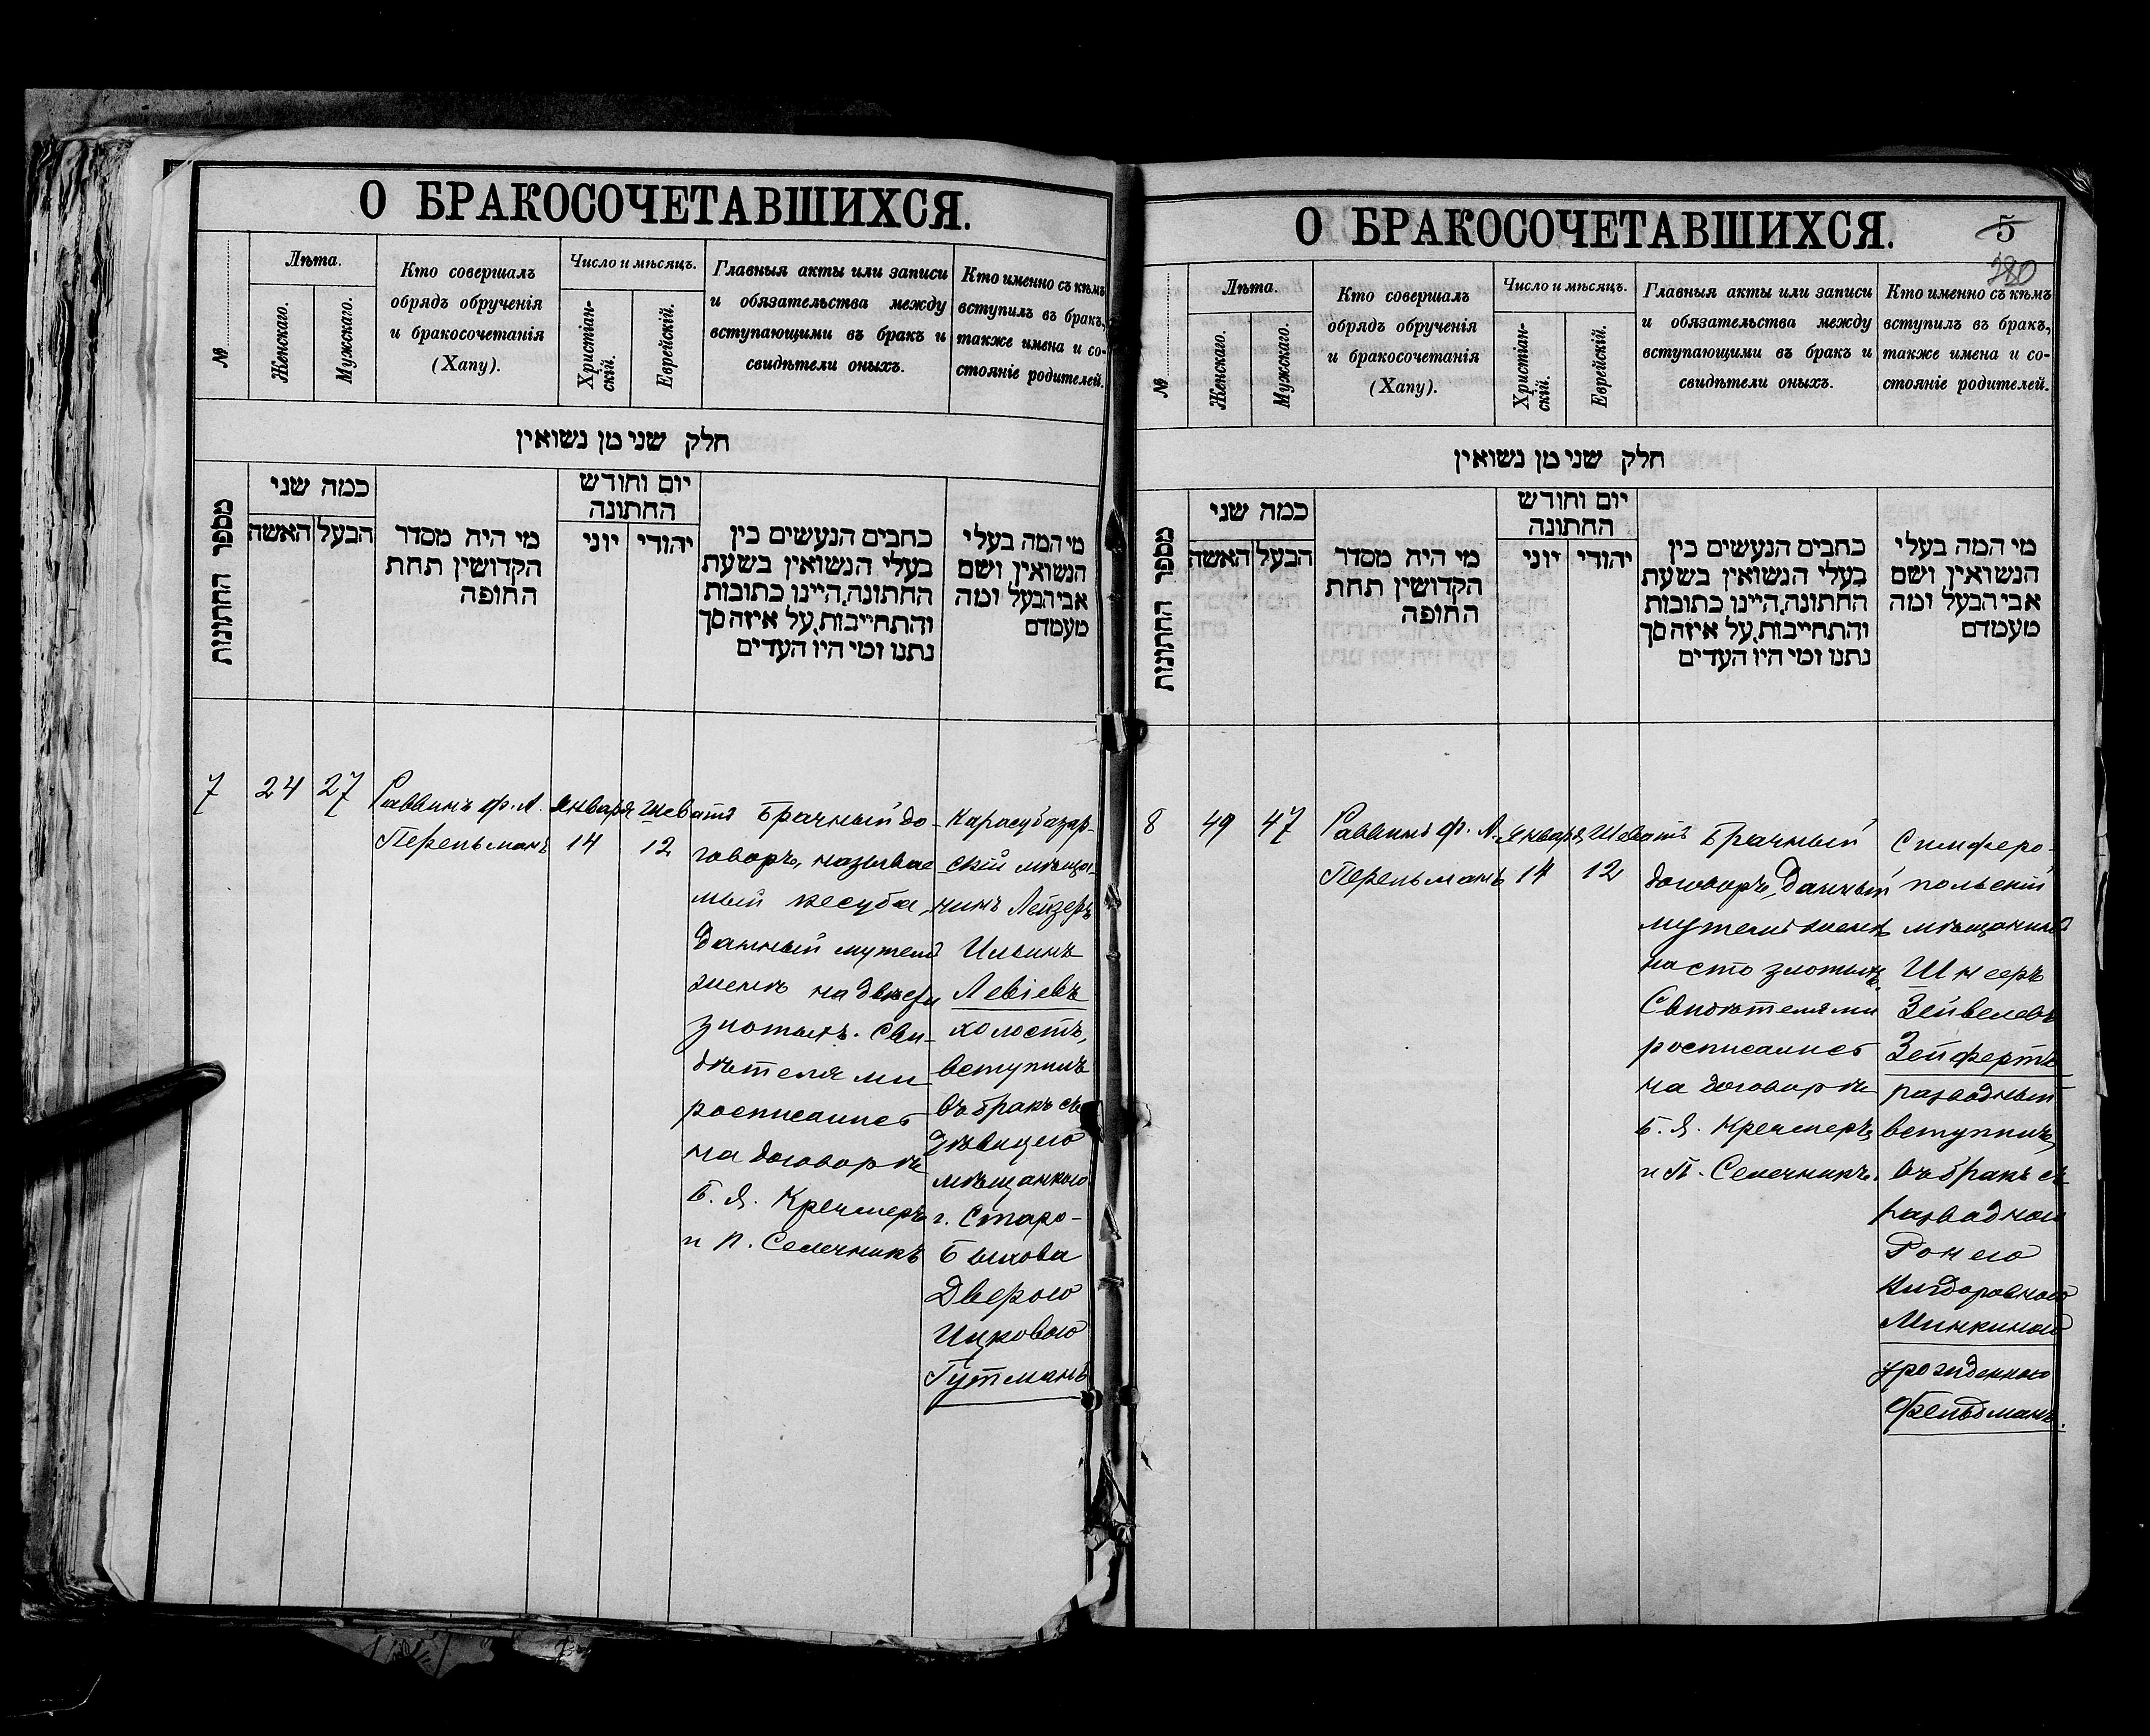 О БРАКОСОЧЕТАВШИХСЯ.
№
Лѣта.
Женскаго.
Мужскаго.
Кто совершалъ
обрядъ обрученія
и бракосочетанія
(Хапу).
Число и мѣсяцъ.
Христіан-
скій.
Еврейскій.
Главныя акты или записи
и обязательства между
вступающими въ бракъ и
свидѣтели оныхъ.
Кто именно съ кѣмъ
вступилъ въ бракъ,
также имена и со-
стояніе родителей.
חלק שני מן נשואין
מספר החתונות
כמה שני
האשה
הבעל
מי היה מסדר
הקדושין תחת
החופה
יום וחודש
החתונה
יוני
יהודי
כתבים הנעשים בין
בעלי הנשואין בשעת
החתונה, היינו כתובות
והתחייבות, על איזה סך
נתנו ומי היו העדים
מי המה בעלי
הנשואין, ושם
אבי הבעל ומה
מעמדם
7
24
27
Раввинъ Ф. Л.
Перельманъ
Января
14
Шеватъ
12
Брачный до-
говоръ, называе-
мый кесуба,
данный мужемъ
женѣ на двѣсти
злотыхъ. Сви-
дѣтелями
росписались
на договорѣ
Б. Я. Кремеръ
и П.Селечникъ
Карасубазар-
скій мѣща-
нинъ Лейзеръ
Ильинъ
Левіевъ
холостъ,
вступилъ
въ бракъ съ
дѣвицею
мѣщанкою
г. Старо-
Быхова
Дверою
Ицковою
Гутманъ
О БРАКОСОЧЕТАВШИХСЯ.
5
280
№
Лѣта.
Женскаго.
Мужскаго.
Кто совершалъ
обрядъ обрученія
и бракосочетанія
(Хапу).
Число и мѣсяцъ.
Христіан-
скій.
Еврейскій.
Главныя акты или записи
и обязательства между
вступающими въ бракъ и
свидѣтели оныхъ.
Кто именно съ кѣмъ
вступилъ въ бракъ,
также имена и со-
стояніе родителей.
חלק שני מן נשואין
מספר החתונות
כמה שני
האשה
הבעל
מי היה מסדר
הקדושין תחת
החופה
יום וחודש
החתונה
יוני
יהודי
כתבים הנעשים בין
בעלי הנשואין בשעת
החתונה, היינו כתובות
והתחייבות, על איזה סך
נתנו ומי היו העדים
מי המה בעלי
הנשואין, ושם
אבי הבעל ומה
מעמדם
8
49
47
Раввинъ Ф. Л.
Перельманъ
Января
14
Шеватъ
12
Брачный
договоръ, данный
мужемъ женѣ
на сто злотыхъ.
Свидѣтелями
росписались
на договорѣ
Б. Я. Кремеръ
и П. Селечникъ.
Симферо-
польскій
мѣщанинъ
Шнееръ
Зейвелевъ
Зейфертъ
разводный
вступилъ
въ бракъ съ
разводною
Ронею
Минкиною
урожденною
Фельдманъ.